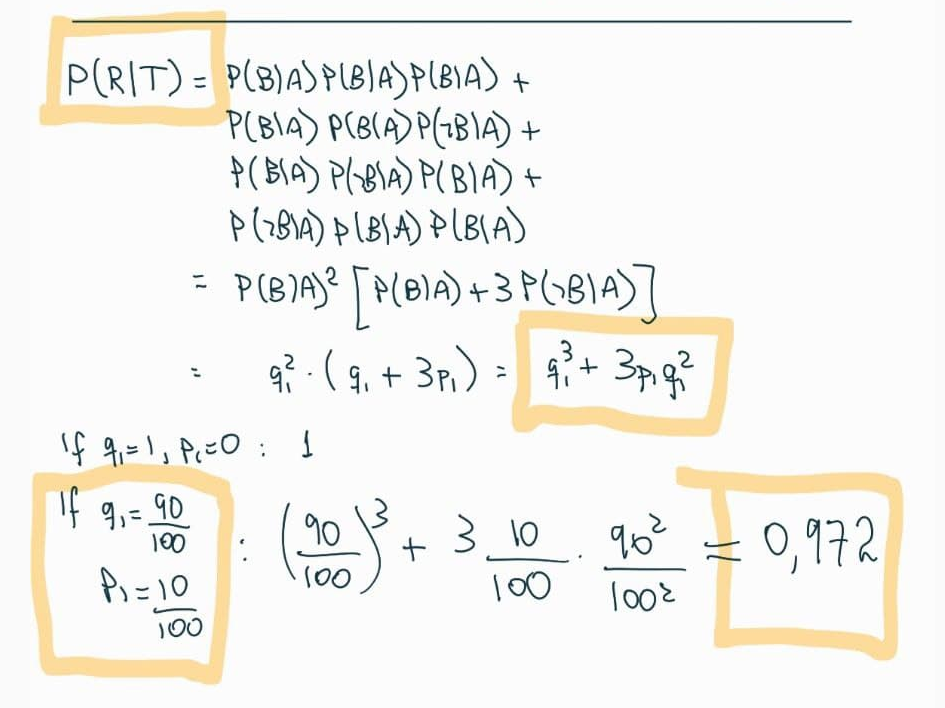 P(R|T) = P(B|A) P(B|A) P(B|A) +
P(B|A) P(B|A) P(¬B|A) +
P(B|A) P(¬B|A) P(B|A) +
P(¬B|A) P(B|A) P(B|A)
= P(B|A)² [P(B|A) + 3 P(¬B|A)]
= q₁² · (q₁ + 3p₁) = q₁³ + 3p₁q₁²
If q₁=1, p₁=0 : 1
If q₁ = 90/100 p₁ = 10/100 : (90/100)³ + 3 10/100 · 90²/100² = 0,972